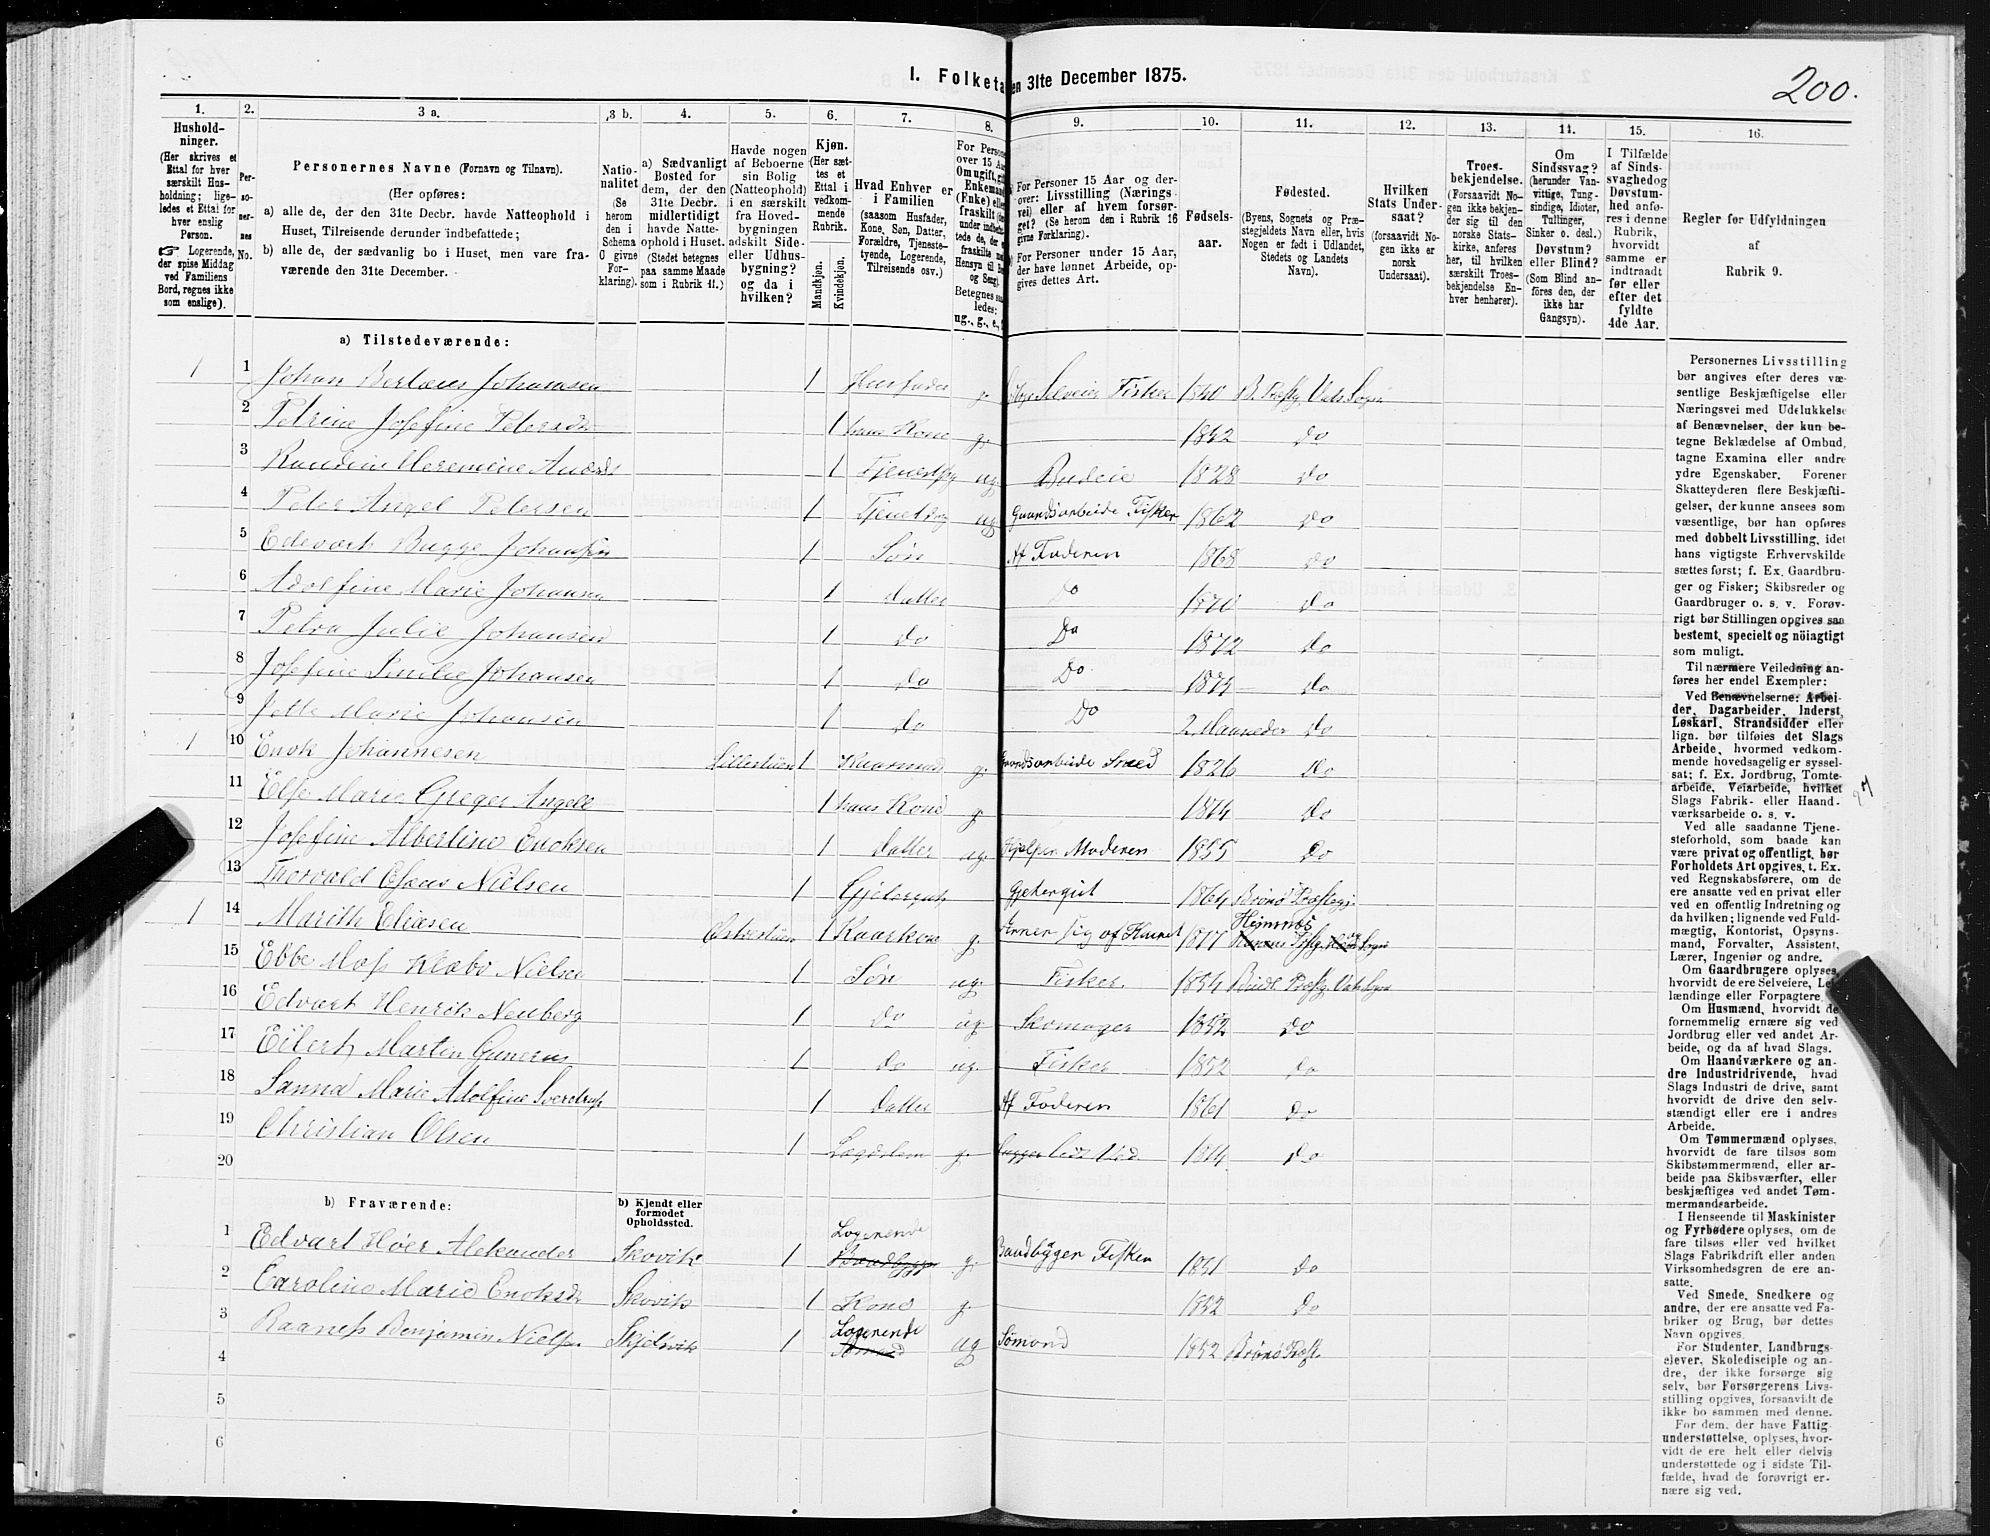 I. Folketa en 31te December 1875.
200.
1.
2.
3 a.
3 b.
4.
5.
6.
7.
8.
9.
10.
11.
12.
13.
14.
15.
16.
Hushold-
ninger.
(Her skrives et
Ettal for hver
særskilt Hus-
holdning; lige-
ledes et Ettal for
hver enslig
Person.
Logerende,
der spise Middag
ved Familiens
Bord, regnes ikke
som enslige).
Per-
so-
ner-
nes
No.
Personernes Navne (Fornavn og Tilnavn).
(Her opføres:
a) alle de, der den 31te Decbr. havde Natteophold i
Huset, Tilreisende derunder indbefattede;
b) alle de, der sædvanlig bo i Huset, men vare fra-
værende den 31te December.
Natio-
nalitet
(Se
herom
den i
Schema
C givne
For-
klaring).
a) Sædvanligt
Bosted for
dem, der den
31te Decbr.
midlertidigt
havde Natte-
ophold i Huset.
(Stedet betegnes
paa samme Maade
som i Rubrik 11.)
Havde nogen
af Beboerne
sin Bolig
(Natteophold)
i en særskilt
fra Hoved-
bygningen
adskilt Side-
eller Udhus-
bygning?
og da i
hvilken?
Kjøn.
(Her sæt-
tes et
Ettal i
vedkom-
mende
Rubrik.
Mandkjøn.
Kvindekjøn.
Hvad Enhver er
i Familien
(saasom Husfader,
Kone, Søn, Datter,
Forældre, Tjeneste-
tyende, Logerende,
Tilreisende osv.)
For Persone
over 15 Aa
Om ugift, gi
Enkemand
(Enke) elle
fraskilt
Betegnes saa
ledes:
ug., g., e.,
For Personer 15 Aar og der-
over: Livsstilling (Nærings-
vei) eller af hvem forsør-
get? (Se herom den i Rubrik 16
givne Forklaring).
For Personer under 15 Aar,
der have lønnet Arbeide, op-
gives dettes Art.
Fødsels-
aar.
Fødested.
(Byens, Sognets og Præ-
stegjeldets Navn eller, hvis
Nogen er født i Udlandet,
Stedets og Landets
Navn).
Hvilken
Stats Under-
saat?
(forsaavidt No-
gen ikke er
norsk
Undersaat).
Troes-
bekjendelse.
(Forsaavidt No-
gen ikke bekjen-
der sig til den
norske Stats-
kirke, anføres
her, til hvilken
særskilt Troes-
bekjendelse En-
hver henhører).
Om
Sindssvag?
(herunder Van-
vittige, Tung-
sindige, Idioter,
Tullinger,
Sinker o. desl.)
Døvstum?
eller Blind?
(Som Blind an-
føres den, der
ikke har
Gangsyn).
I Tilfælde
af Sinds-
svaghed og
Døvstum-
hed anfø-
res i denne
Rubrik,
hvorvidt
samme er
indtraadt
før eller
efter det
fyldte
4de Aar.
Regler for Udfyldningen
af
Rubrik 9.
a) Tilstedeværende:
1 1 Johan Berlæus Johansen 1 Husfader g. Selveier Fisker 1840 B. Præstg. Vats Sogn
2 Petrine Josefine Petersdr 1 hans Kone g. 1842 Do
3 1 ug. Budeie 1828 Do
4 Peter Angel Petersen 1 ug. Gaardsarbeide Fisker 1862 Do
5 Edevart Bugge Johansen 1 Søn Af Faderen 1868 Do
6 Adolfine Marie Johansen 1 Datter Do 1870 Do
7 Petra Julie Johansen 1 Do Do 1872 Do
8 Josefine Emilie Johansen 1 Do Do 1874 Do
9 Jette Marie Johansen 1 Do Do 2 Maaneder Do
1 10 Enok Johannesen 1 Kaarmand g. Gaardsarbeide Smed 1826 Do
11 Else Marie Greger Angell 1 hans Kone g. 1814 Do
12 Josefine Albertine Enoksen 1 Datter ug. Hjelper Moderen 1855 Do
13 Thorvald Nielsen 1 Gjetergut Gjetergut 1864 Brønø Præsteg.
1 14 Marith Eliasen Østerstuen 1 Kaarkone g. 1817 Hemnæs
15 Ebbe Mass Klæbo Nielsen 1 Søn ug. Fisker 1854 Bindl. Præstg. Vats Sogn
16 Edvart Henrik Neuberg 1 Do ug. Skomager 1852 Do
17 Eilert Martin Gunerius 1 Do ug. Fisker 1852 Do
18 Sanna Marie Adolfine Sverdrup 1 Datter Af Faderen 1861 Do
19 Christian Olsen 1 Lægdslem g. 1814 Do
20
b) Fraværende:
b) Kjendt eller
formodet
Opholdssted.
1 Edvart Høier Aleksander Skovik 1 Logerende g. Baadbygger Fisker 1851 Do
2 Caroline Marie Enoksdr Skovik 1 Kone g. 1852 Do
3 Benjamin Nielsen Skjelsvik 1 Logerende ug Sømand 1852 Brønø Præst.
4
5
6
Personernes Livsstilling
bør angives efter deres væ-
sentlige Beskjæftigelse eller
Næringsvei med Udelukkelse
af Benævnelser, der kun be-
tegne Beklædelse af Ombud,
tagne Examina eller andre
ydre Egenskaber. Forener
Skatteyderen flere Beskjæfti-
gelser, der kunne ansees som
væsentlige, bør han opføres
med dobbelt Livsstilling, idet
hans vigtigste Erhvervskilde
sættes først; f. Ex. Gaardbru-
ger og Fisker; Skibsreder og
Gaardbruger o. s. v. Forøv-
rigt bør Stillingen opgives saa
bestemt, specielt og nöiagtigt
som muligt.
Til nærmere Veiledning an-
føres her endel Exempler:
Ved Benævnelserne: Arbei-
der, Dagarbeider, Inderst,
Løskarl, Strandsidder eller
lign. bør tilføies det Slags
Arbeide, hvormed vedkom-
mende hovedsagelig er syssel-
sat; f. Ex. Jordbrug, Tomte-
arbeide, Veiarbeide, hvilket
Slags Fabrik- eller Haand-
værksarbeide o. s. v.
Ved alle saadanne Tjene-
steforhold, som baade kan
være privat og offentligt, bør
Forholdets Art opgives, t. Ex.
ved Regnskabsførere, om de
ere ansatte ved en privat eller
ved en offentlig Indretning og
da hvilken; lignende ved Fuld-
mægtig, Kontorist, Opsyns-
mand, Forvalter, Assistent,
Lærer, Ingeniør og andre.
Om Gaardbrugere oplyses,
hvorvidt de ere Selveiere, Lei-
lændinge eller Forpagtere.
Om Husmænd, hvorvidt de
fornemmelig ernære sig ved
Jordbrug eller ved andet Ar-
beide, og da af hvad Slags.
Om Haandværkere og an-
dre Industridrivende, hvad
Slags Industri de drive, samt
hvorvidt de drive den selv-
stændigt eller ere i andres
Arbeide.
Om Tømmermænd oplyses,
hvorvidt de fare tilsøs som
Skibstømmermænd, eller ar-
beide paa Skibsværfter, eller
beskjæftiges ved andet Tøm-
mermandsarbeide.
I Henseende til Maskinister
og Fyrbødere oplyses, om de
fare tilsøs eller ved hvilket
Slags Fabrikdrift eller anden
Virksomhedsgren de ere an-
satte.
Ved Smede, Snedkere og
andre, der ere ansatte ved Fa-
briker og Brug, bør dettes
Navn opgives.
For Studenter, Landbrugs-
elever, Skoledisciple og an-
dre, der ikke forsørge sig
selv, bør Forsørgerens Livs-
stilling opgives, forsaavidt de
ikke bo sammen med denne.
For dem, der have Fattig-
understøttelse, oplyses, hvor-
vidt de ere helt eller delvis
understøttede og i sidste Til-
fælde, hvad de forøvrigt er-
nære sig ved.